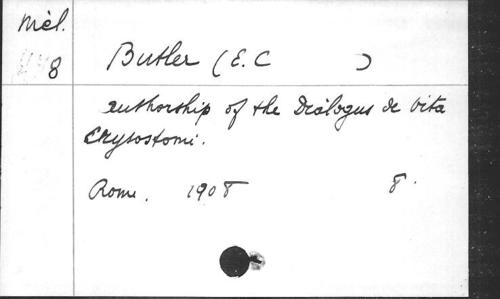 Mél.
8
Butler (E. C )
authorship of the Dialogus de vita
Chrysostomi.
Rome. 1908 8°.